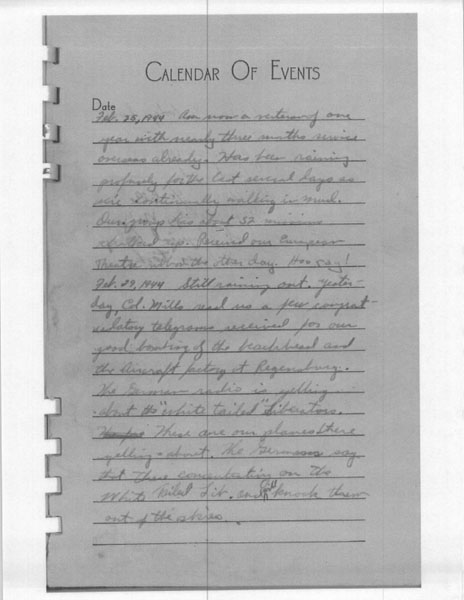 CALENDAR OF EVENTS
Date
Feb. 25, 1944 Am now a veteran of one
year with nearly three months service
overseas already. Has been raining
profusely for the last several days so
are continually walking in mud.
Our group has about 52 missions
Received our European
Theatre ribbon the other day. Hooray!
Feb. 29, 1944 Still raining out. Yester-
day, Col. Mills read us a few congrat-
ulatory telegrams received for our
good bombing of the beachhead and
the aircraft factory at Regensburg.
The German radio is yelling
about the "white tailed" Liberators.
These are our planes there
yelling about. The Germans say
that there concentrating on the
White tailed Lib. and will knock them
out of the skies.